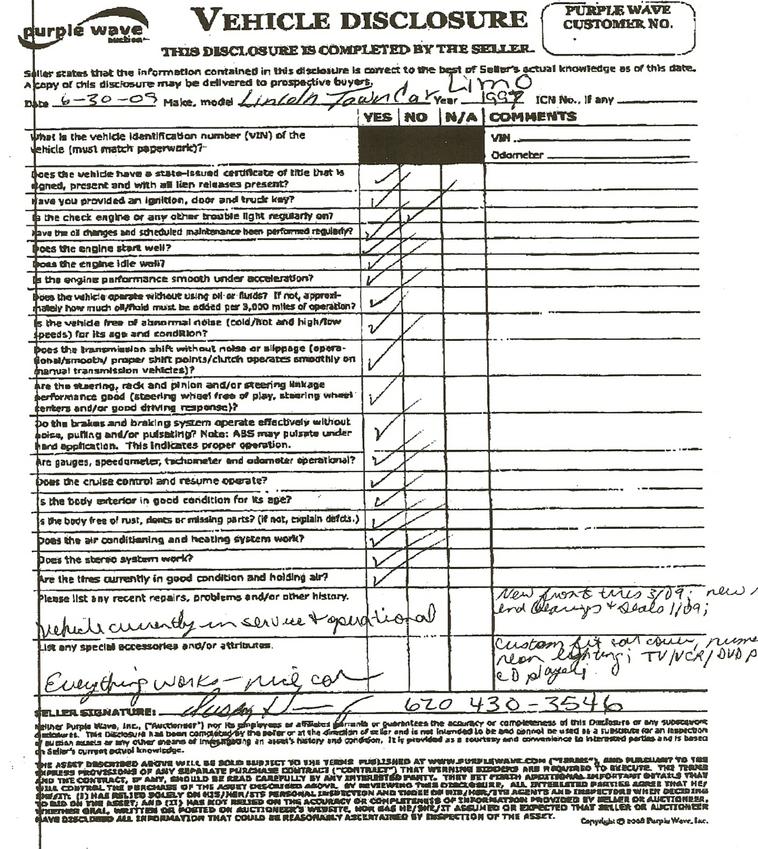 purple wave
auction
VEHICLE DISCLOSURE
PURPLE WAVE
CUSTOMER NO.
THIS DISCLOSURE IS COMPLETED BY THE SELLER.
Seller states that the information contained in this disclosure is correct to the best of Seller's actual knowledge as of this date.
A copy of this disclosure may be delivered to prospective buyers.
Limo
Date 6-30-09 Make, model Lincoln Town Car Year 1997 ICN No., if any
YES NO N/A COMMENTS
What is the vehicle identification number (VIN) of the
vehicle (must match paperwork)?
VIN
Odometer
Does the vehicle have a state-issued certificate of title that is
signed, present and with all lien releases present?
Have you provided an ignition, door and truck key?
Is the check engine or any other trouble light regularly on?
Have the oil changes and scheduled maintenance been performed regularly?
Does the engine start well?
Does the engine idle well?
Is the engine performance smooth under acceleration?
Does the vehicle operate without using oil or fluids? If not, approxi-
mately how much oil/fluid must be added per 3,000 miles of operation?
Is the vehicle free of abnormal noise (cold/hot and high/low
speeds) for its age and condition?
Does the transmission shift without noise or slippage (opera-
tional/smooth/ proper shift points/clutch operates smoothly on
manual transmission vehicles)?
Are the steering, rack and pinion and/or steering linkage
performance good (steering wheel free of play, steering wheel
centers and/or good driving response)?
Do the brakes and braking system operate effectively without
noise, pulling and/or pulsating? Note: ABS may pulsate under
hard application. This indicates proper operation.
Are gauges, speedometer, tachometer and odometer operational?
Does the cruise control and resume operate?
Is the body exterior in good condition for its age?
Is the body free of rust, dents or missing parts? (if not, explain defcts.)
Does the air conditioning and heating system work?
Does the stereo system work?
Are the tires currently in good condition and holding air?
Please list any recent repairs, problems and/or other history.
New front tires 3/09; new
end bearings & seals 1/09;
Vehicle currently in service & operational
List any special accessories and/or attributes.
custom fit car cover,
neon lighting; TV/VCR/DVD
CD player;
Everything works - nice car
SELLER SIGNATURE: 620 430-3546
Neither Purple Wave, Inc., ("Auctioneer") nor its employees or affiliates warrants or guarantees the accuracy or completeness of this Disclosure or any subsequent
disclosures. This Disclosure has been completed by the seller or at the direction of seller and is not intended to be and cannot be used as a substitute for an inspection
of auction assets or any other means of investigating an asset's history and condition. It is provided as a courtesy and convenience to interested parties and is based
on Seller's current actual knowledge.
THE ASSET DESCRIBED ABOVE WILL BE SOLD SUBJECT TO THE TERMS PUBLISHED AT WWW.PURPLEWAVE.COM ("TERMS"), AND PURSUANT TO THE
EXPRESS PROVISIONS OF ANY SEPARATE PURCHASE CONTRACT ("CONTRACT") THAT WINNING BIDDERS ARE REQUIRED TO EXECUTE. THE TERMS
AND THE CONTRACT, IF ANY, SHOULD BE READ CAREFULLY BY ANY INTERESTED PARTY. THEY SET FORTH ADDITIONAL IMPORTANT DETAILS THAT
WILL CONTROL THE PURCHASE OF THE ASSET DESCRIBED ABOVE. BY REVIEWING THIS DISCLOSURE, ALL INTERESTED PARTIES AGREE THAT
HE/SHE/IT: (I) HAS RELIED SOLELY ON HIS/HER/ITS PERSONAL INSPECTION AND THOSE OF HIS/HER/ITS AGENTS AND INSPECTORS WHEN DECIDING
TO BID ON THE ASSET; AND (II) HAS NOT RELIED ON THE ACCURACY OR COMPLETENESS OF INFORMATION PROVIDED BY SELLER OR AUCTIONEER,
WHETHER ORAL, WRITTEN OR POSTED ON AUCTIONEER'S WEBSITE, NOR HAS HE/SHE/IT ASSUMED OR EXPECTED THAT SELLER OR AUCTIONEER
HAVE DISCLOSED ALL INFORMATION THAT COULD BE REASONABLY ASCERTAINED BY INSPECTION OF THE ASSET.
Copyright © 2008 Purple Wave, Inc.